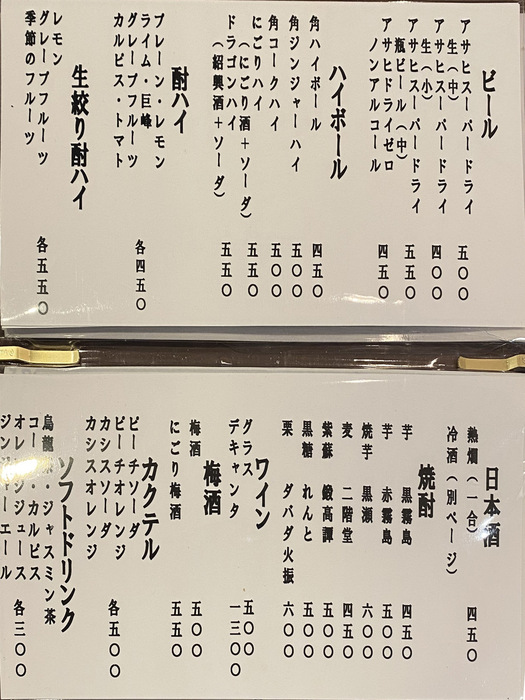 ビール
アサヒスーパードライ
生（中） 五〇〇
アサヒスーパードライ
生（小） 四〇〇
アサヒスーパードライ
瓶ビール（中） 五五〇
アサヒドライゼロ
ノンアルコール 四五〇
ハイボール
角ハイボール 四五〇
角ジンジャーハイ 五〇〇
角コークハイ 五〇〇
にごりハイ
（にごり酒＋ソーダ） 五五〇
ドラゴンハイ
（紹興酒＋ソーダ） 五五〇
酎ハイ
プレーン・レモン
ライム・巨峰
グレープフルーツ
カルピス・トマト 各四五〇
生絞り酎ハイ
レモン
グレープフルーツ
季節のフルーツ 各五五〇
日本酒
熱燗（一合） 四五〇
冷酒（別ページ）
焼酎
芋 黒霧島 四五〇
芋 赤霧島 五〇〇
焼芋 黒瀬 六〇〇
麦 二階堂 四五〇
紫蘇 鍛高譚 五〇〇
黒糖 れんと 五〇〇
栗 ダバダ火振 六〇〇
ワイン
グラス 五〇〇
デキャンタ 一三〇〇
梅酒
梅酒 五〇〇
にごり梅酒 五五〇
カクテル
ピーチソーダ
ピーチオレンジ
カシスソーダ
カシスオレンジ 各五〇〇
ソフトドリンク
烏龍茶・ジャスミン茶
コーラ カルピス
オレンジジュース
ジンジャーエール 各三〇〇